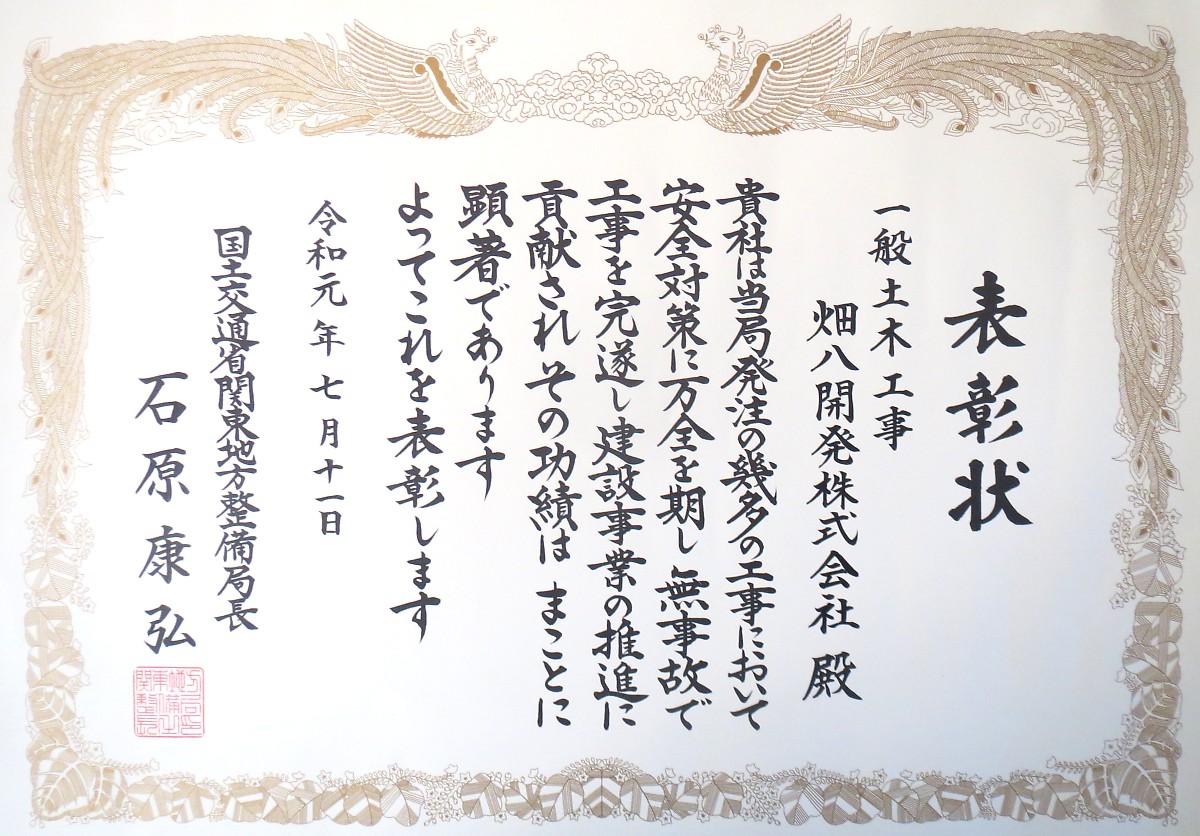 表彰状
一般土木工事
畑八開発株式会社 殿
貴社は当局発注の幾多の工事において
安全対策に万全を期し 無事故で
工事を完遂し 建設事業の推進に
貢献され その功績は まことに
顕著であります
よってこれを表彰します
令和元年七月十一日
国土交通省関東地方整備局長
石原康弘